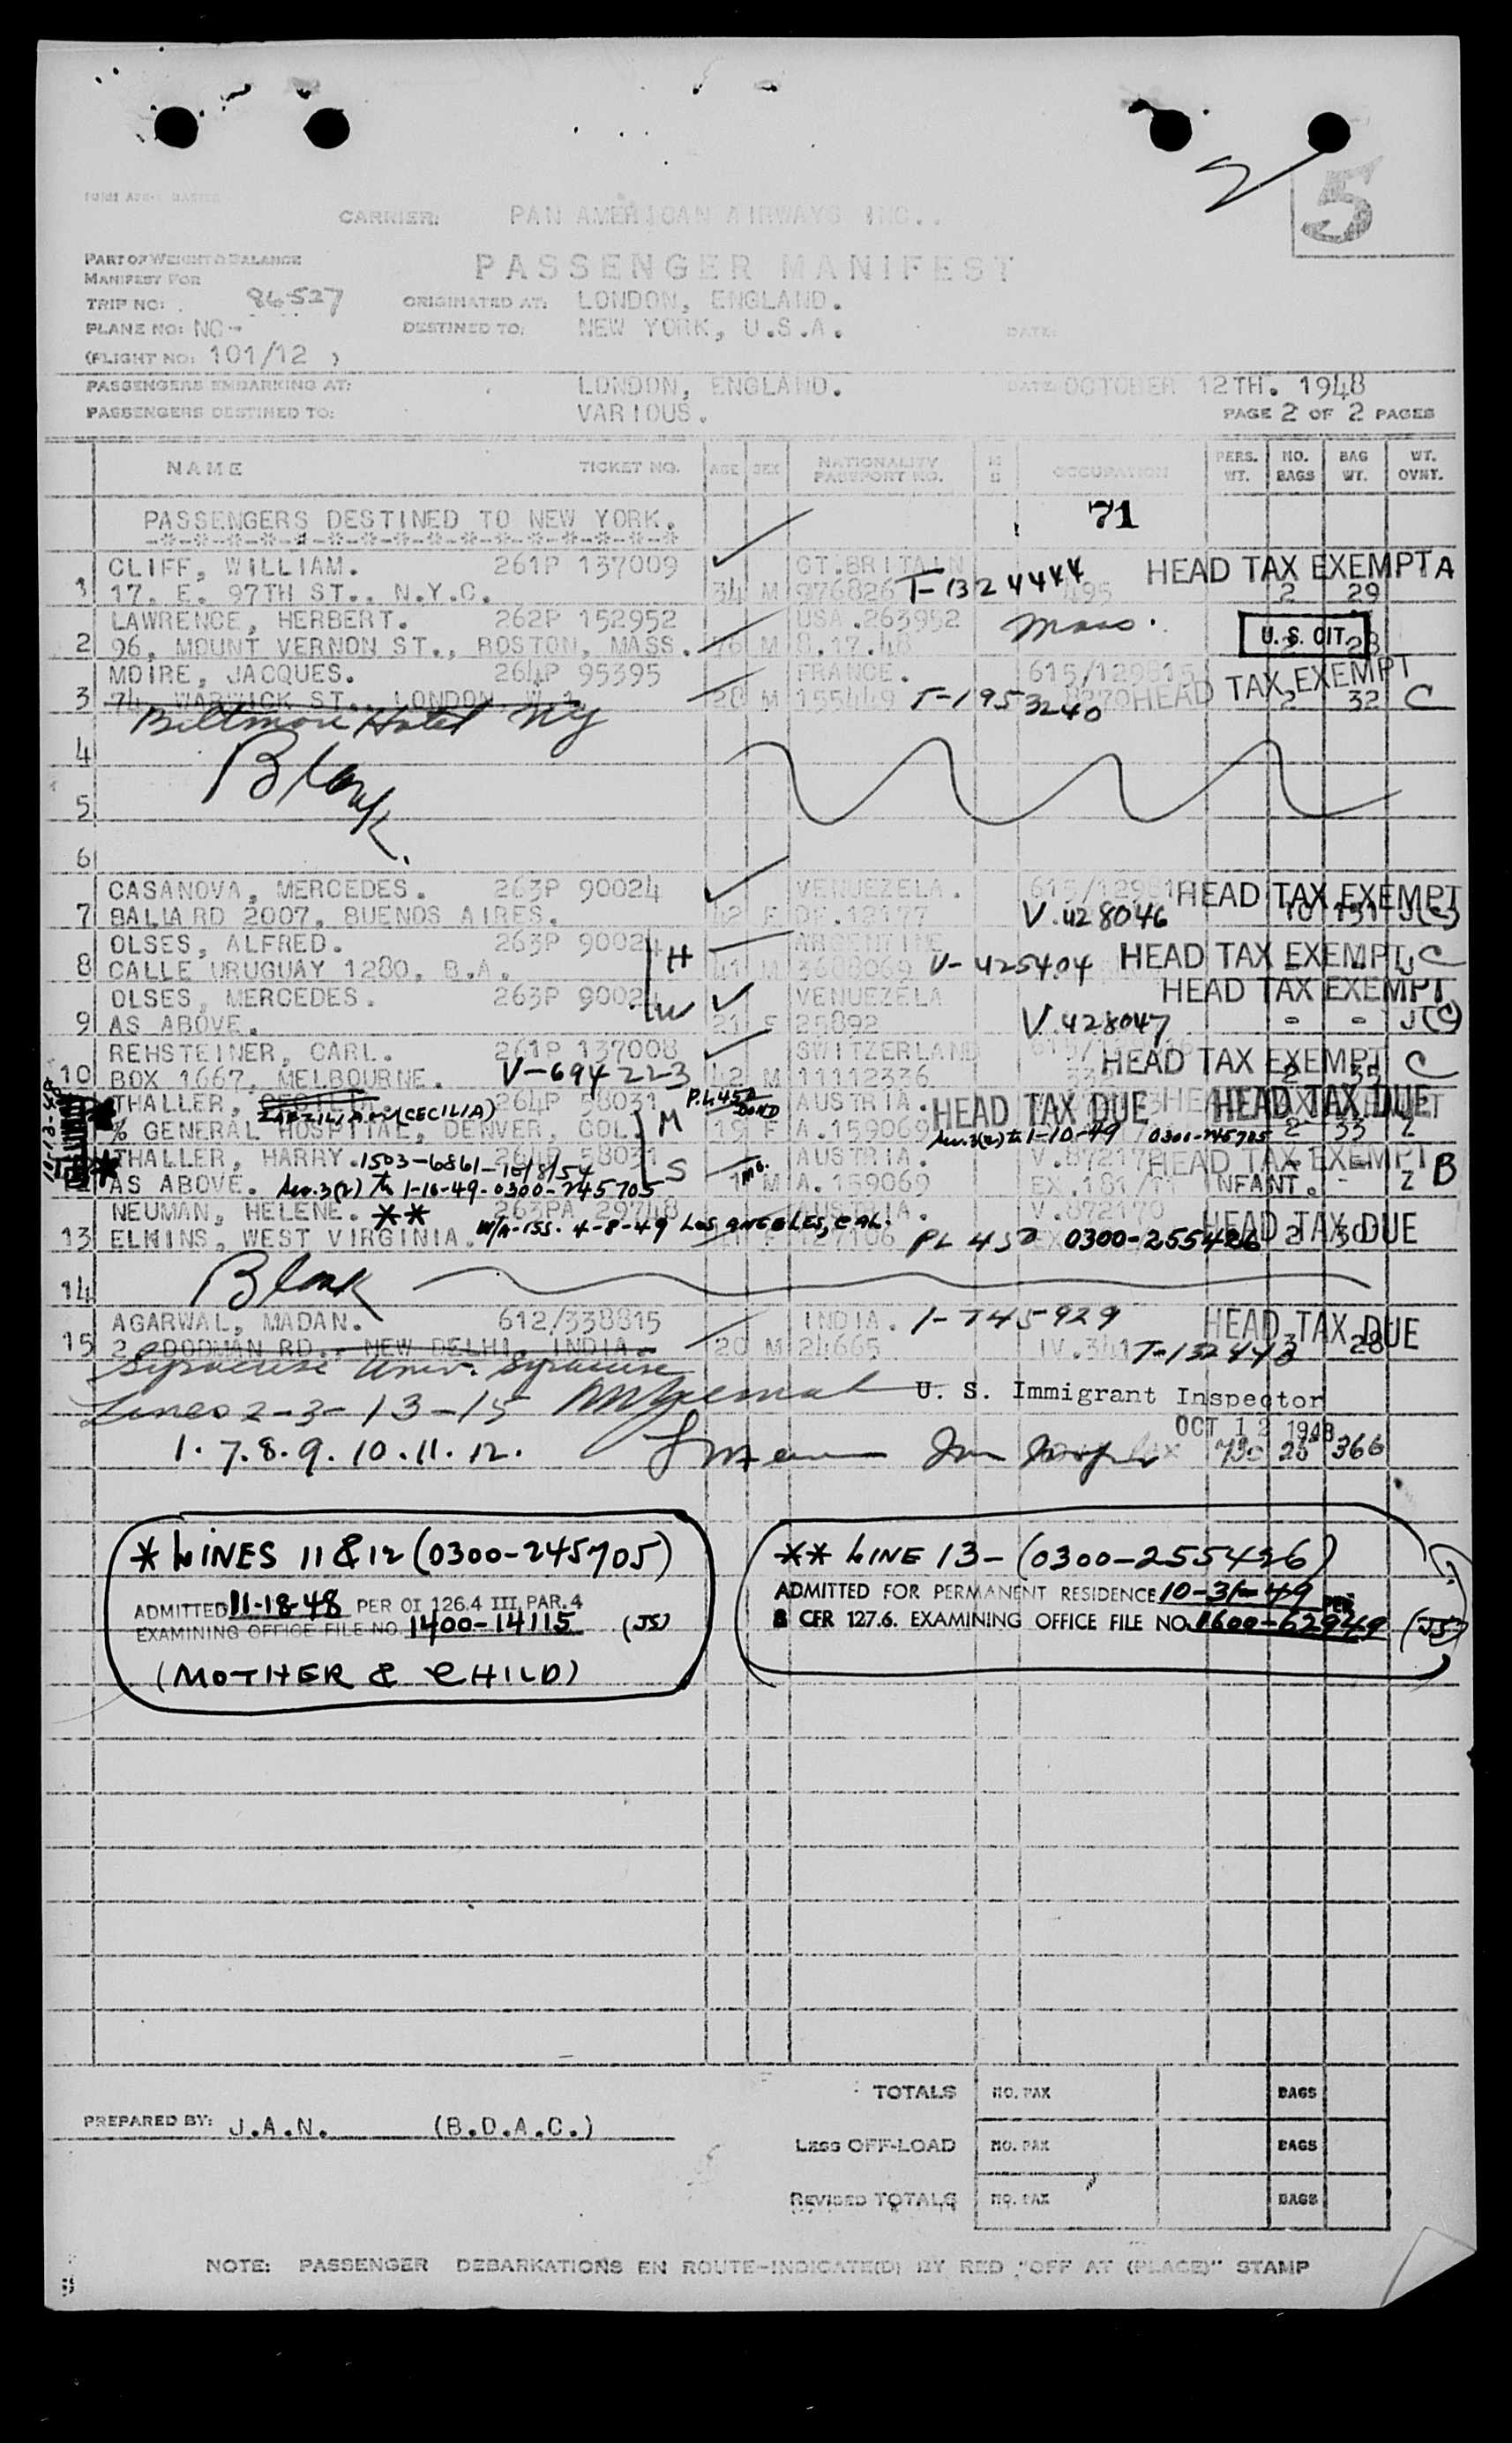 2
5
CARRIER: PAN AMERICAN AIRWAYS INC..
PART OF WEIGHT & BALANCE
MANIFEST FOR
PASSENGER MANIFEST
TRIP NO: 86527 ORIGINATED AT: LONDON, ENGLAND.
PLANE NO: NC- DESTINED TO: NEW YORK, U.S.A. DATE:
(FLIGHT NO: 101/12 )
PASSENGERS EMBARKING AT: LONDON, ENGLAND. DATE: OCTOBER 12TH. 1948
PASSENGERS DESTINED TO: VARIOUS. PAGE 2 OF 2 PAGES
NAME TICKET NO. AGE SEX NATIONALITY PASSPORT NO. M S OCCUPATION PERS. WT. NO. BAGS BAG WT. WT. OVNT.
PASSENGERS DESTINED TO NEW YORK. 71
-*-*-*-*-*-*-*-*-*-*-*-*-*-*-*-*-*
CLIFF, WILLIAM. 261P 137009 GT.BRITAIN HEAD TAX EXEMPT A
1 17. E. 97TH ST., N.Y.C. 34 M 976826 T-1324444 495 2 29
LAWRENCE, HERBERT. 262P 152952 USA.263952 Mass. U.S. CIT.
2 96, MOUNT VERNON ST., BOSTON, MASS. 76 M 8.17.48 28
MOIRE, JACQUES. 264P 95395 FRANCE. 615/129815 HEAD TAX EXEMPT
3 74, WARWICK ST., LONDON W.1 28 M 155449 T-1953240 8270 2 32 C
Biltmore Hotel NY
4 Blank.
5
6
CASANOVA, MERCEDES. 263P 90024 VENUEZELA. HEAD TAX EXEMPT
7 BALLARD 2007, BUENOS AIRES. 42 F DF.12177 V.428046 10 151 J(C)
OLSES, ALFRED. 263P 90024 H ARGENTINE
8 CALLE URUGUAY 1280, B.A. 41 M 3688069 V-425404 HEAD TAX EXEMPT J C
OLSES, MERCEDES. 263P 90024 W VENUEZELA HEAD TAX EXEMPT
9 AS ABOVE. 21 F 25892 V.428047 - - J(C)
REHSTEINER, CARL. 261P 137008 SWITZERLAND HEAD TAX EXEMPT C
10 BOX 1667, MELBOURNE. V-694223 42 M 11112336 2 35
THALLER, (CECILIA) 264P 58031 M P.L.450 BOND AUSTRIA. HEAD TAX DUE HEAD TAX DUE
% GENERAL HOSPITAL, DENVER, COL. 19 F A.159069 1-10-49 0300-245705 2 33 Z
10-12-48
THALLER, HARRY. 1503-6861-10/8/54 264P 58031 S AUSTRIA. V.872172 HEAD TAX EXEMPT B
AS ABOVE. 1-10-49-0300-245705 1 mo. M A.159069 EX.181/11 INFANT. - Z
NEUMAN, HELENE. ** 263PA 29748 AUSTRIA. V.872170 HEAD TAX DUE
13 ELKINS, WEST VIRGINIA. W/A-ISS. 4-8-49 LOS ANGELES, CAL. F 127106 PL 450 0300-255426 2 30
14 Blank
AGARWAL, MADAN. 612/338815 INDIA. 1-745929 HEAD TAX DUE
15 2, DODMAN RD., NEW DELHI, INDIA. 20 M 24665 IV.341 T-132443 3 28
Syracuse Univ. Syracuse
Lines 2-3-13-15 U. S. Immigrant Inspector
OCT 12 1948
1. 7. 8. 9. 10. 11. 12. 25 366
* LINES 11 & 12 (0300-245705)
ADMITTED 11-18-48 PER OI 126.4 III, PAR. 4
EXAMINING OFFICE FILE NO. 1400-14115 (JS)
(MOTHER & CHILD)
** LINE 13- (0300-255426)
ADMITTED FOR PERMANENT RESIDENCE 10-31-49 PER
8 CFR 127.6. EXAMINING OFFICE FILE NO. 1600-62949 (JS)
TOTALS NO. PAX BAGS
PREPARED BY: J.A.N. (B.D.A.C.)
LESS OFF-LOAD NO. PAX BAGS
REVISED TOTALS NO. PAX BAGS
NOTE: PASSENGER DEBARKATIONS EN ROUTE-INDICATE(D) BY RED "OFF AT (PLACE)" STAMP